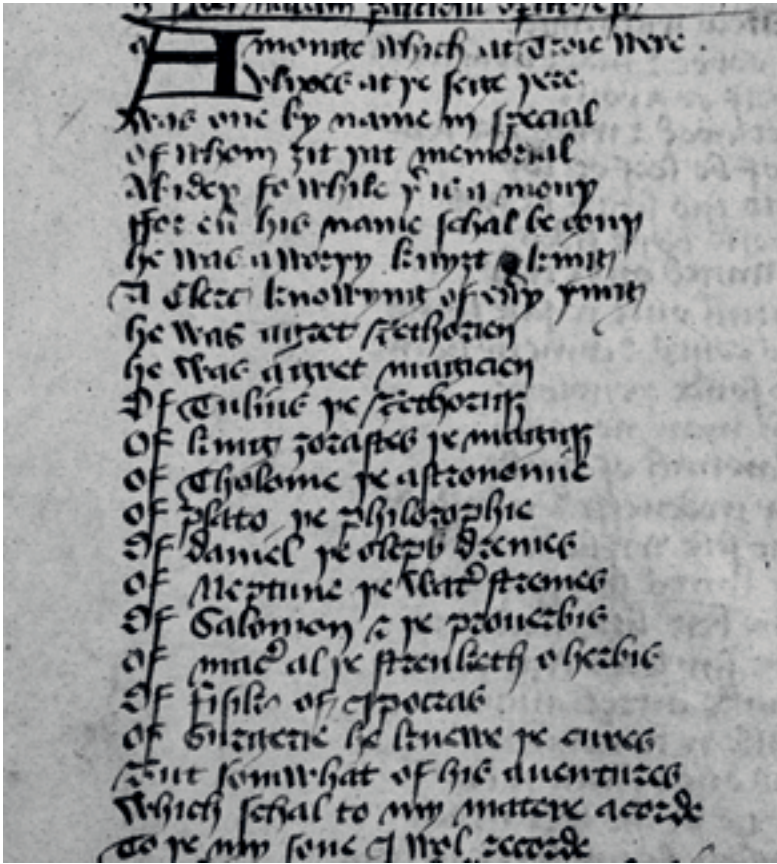 Amonge which at Troie were .
vlixes at þe sege þere
was one by name in special
of whom ȝit þat memorial
Abideþ so while þͬ is a mouþ
ffor eū his name schal be couþ
he was a worþy knyȝt & king
A Clerc knowyng of eūy þing
he was a gret rethorien
he was a gret magicien
Of Tulius þe rethoriq
Of king zorastes þe magiq
of Tholome þe astronomie
of plato þe philosophie
Of daniel þe slepy dremes
of Neptune þe wat̉ stremes
Of Salomon & þe prouerbis
of mac̉ al þe strenketh o herbis
Of fisik of ypocras
of Surgerie he knewe þe cures
But somwhat of his auentures
Which schal to my matere acorde
To þe my sone I wol recorde